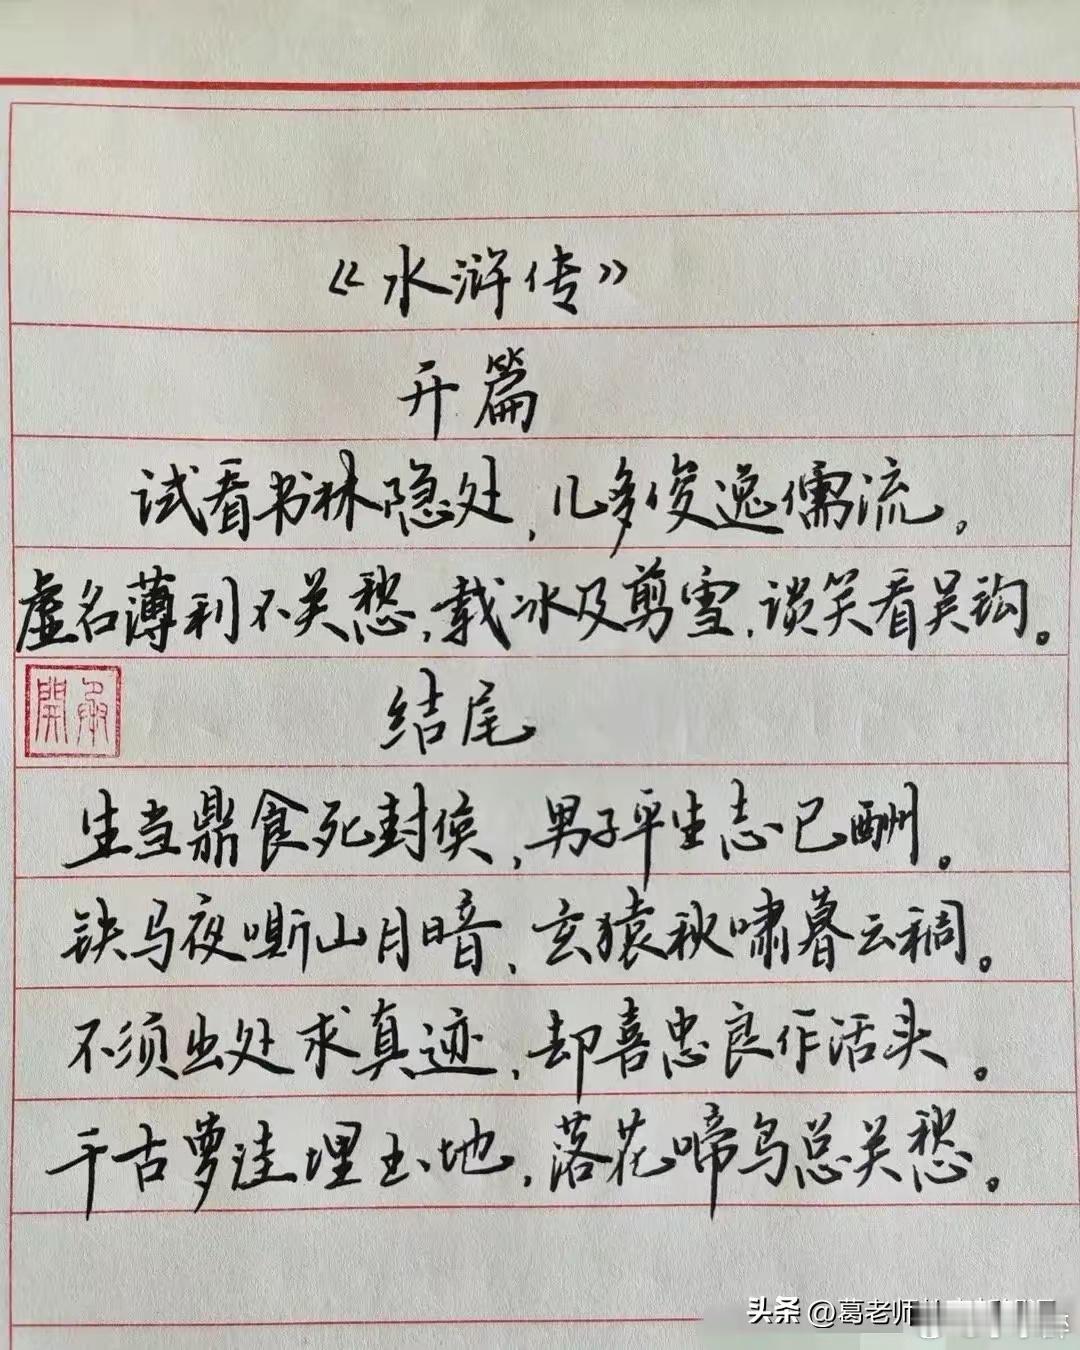 《水浒传》
开篇
试看书林隐处,几多俊逸儒流。
虚名薄利不关愁,载冰及剪雪,谈笑看吴钩。
结尾
生当鼎食死封侯,男子平生志已酬。
铁马夜嘶山月暗,玄猿秋啸暮云稠。
不须出处求真迹,却喜忠良作话头。
千古蓼洼埋玉地,落花啼鸟总关愁。
头条 @葛老师